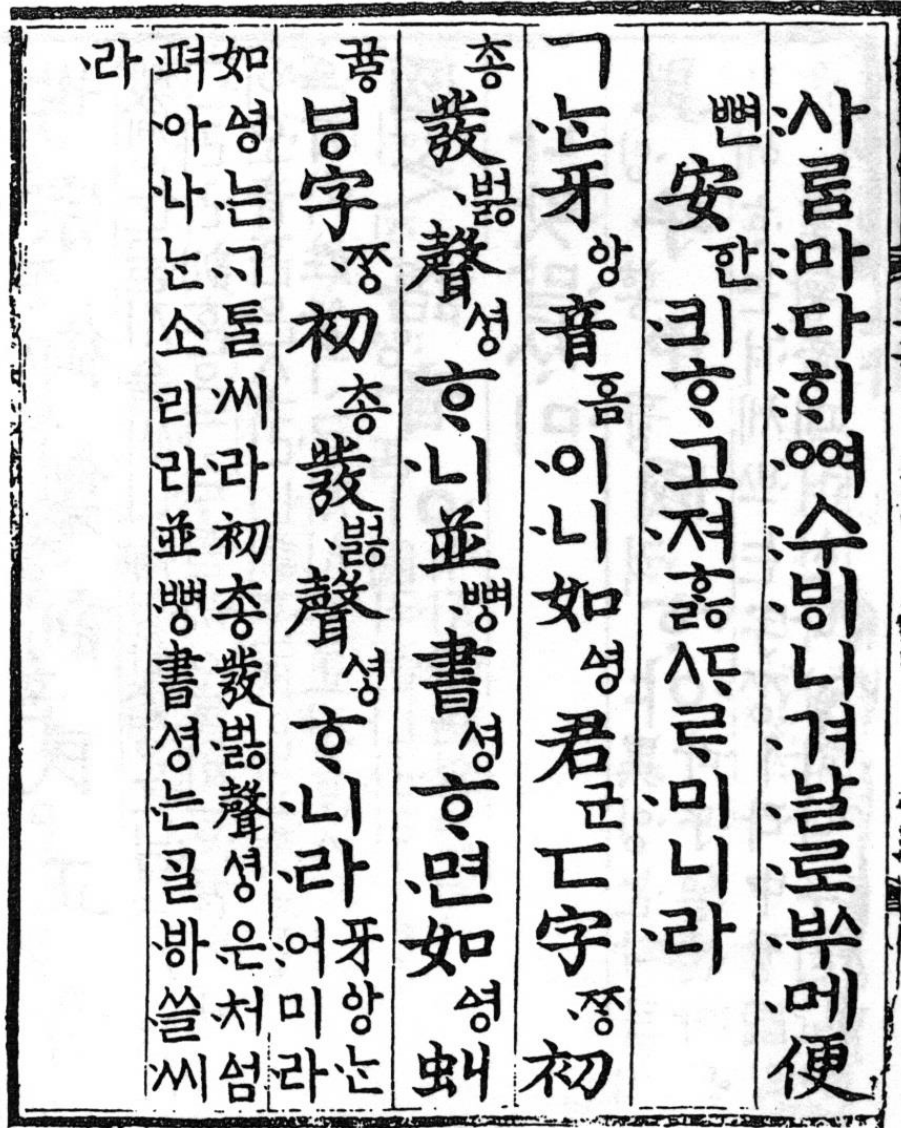 사〯ᄅᆞᆷ마〯다〯ᄒᆡ〯ᅇᅧ〮수〯ᄫᅵ〮니겨〮날〮로〮ᄡᅮ〮메〮便
뼌安ᅙᅡᆫ킈〮ᄒᆞ고〮져〮ᄒᆞᇙᄯᆞᄅᆞ미〮니라〮
ㄱᄂᆞᆫ〮牙ᅌᅡᆼ音ᅙᅳᆷ이〮니〮如ᅀᅧᆼ君군ㄷ字ᄍᆞᆼ〮初
총發버ᇙ〮聲셔ᇰᄒᆞ니〮並뼈ᇰ〮書셩ᄒᆞ면〮如ᅀᅧᆼ虯
뀨ᇢㅸ字ᄍᆞᆼ〮初총發버ᇙ〮聲셔ᇰᄒᆞ니〮라〮
牙ᅌᅡᆼᄂᆞᆫ〮
어〯미라〮
如ᅀᅧᆼ는〮ᄀᆞ〮ᄐᆞᆯ씨〮라〮初총發버ᇙ〮聲셔ᇰ은〮처〮ᅀᅥᆷ
펴〮아〮나〮ᄂᆞᆫ소리〮라〮並뼈ᇰ〮書셩는〮ᄀᆞᆯᄫᅡ〮쓸〮씨〮
라〮